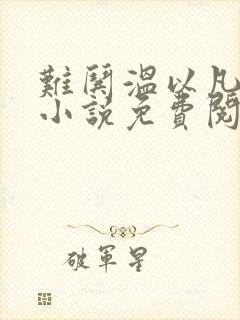 難鬨溫以凡
小說免費閱
破軍星